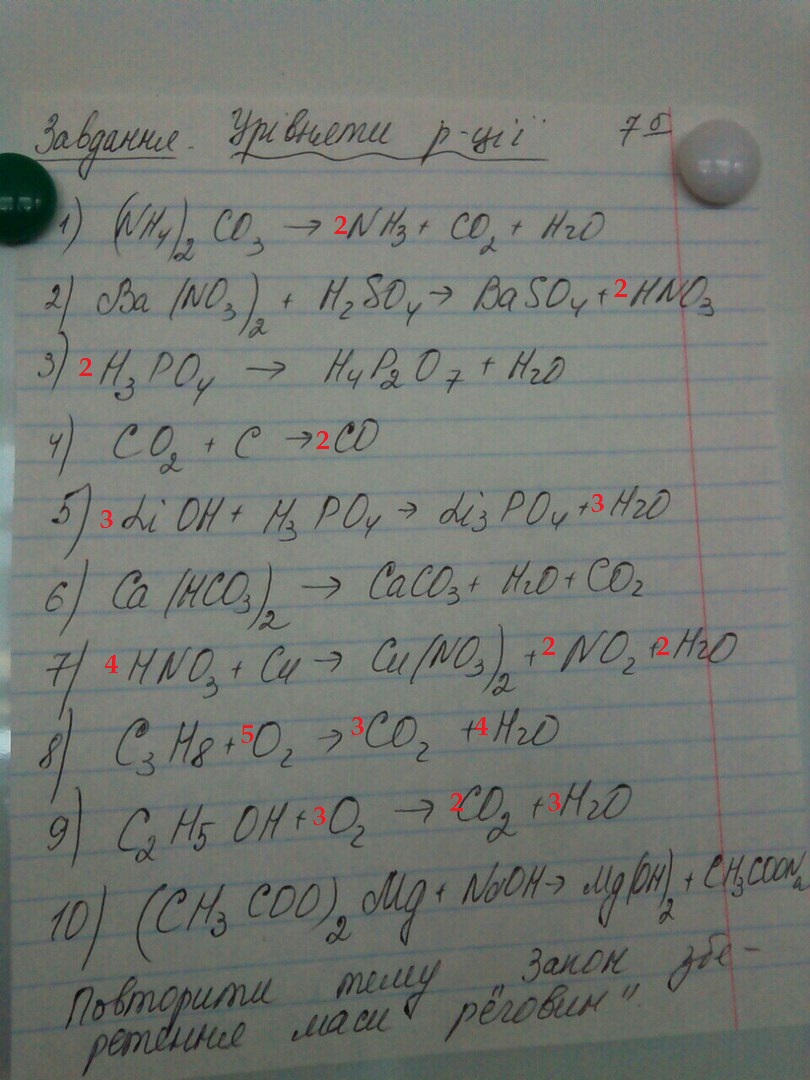 Завдання. Урівняти р-ції 7б
1) (NH4)2 CO3 → 2NH3 + CO2 + H2O
2) Ba (NO3)2 + H2SO4 → BaSO4 + 2HNO3
3) 2 H3PO4 → H4P2O7 + H2O
4) CO2 + C → 2CO
5) 3 LiOH + H3PO4 → Li3PO4 + 3H2O
6) Ca (HCO3)2 → CaCO3 + H2O + CO2
7) 4 HNO3 + Cu → Cu(NO3)2 + 2NO2 + 2H2O
8) C3H8 + 5O2 → 3CO2 + 4H2O
9) C2H5OH + 3O2 → 2CO2 + 3H2O
10) (CH3COO)2Mg + NaOH → Mg(OH)2 + CH3COONa
Повторити тему "Закон збе-
реження маси речовин".